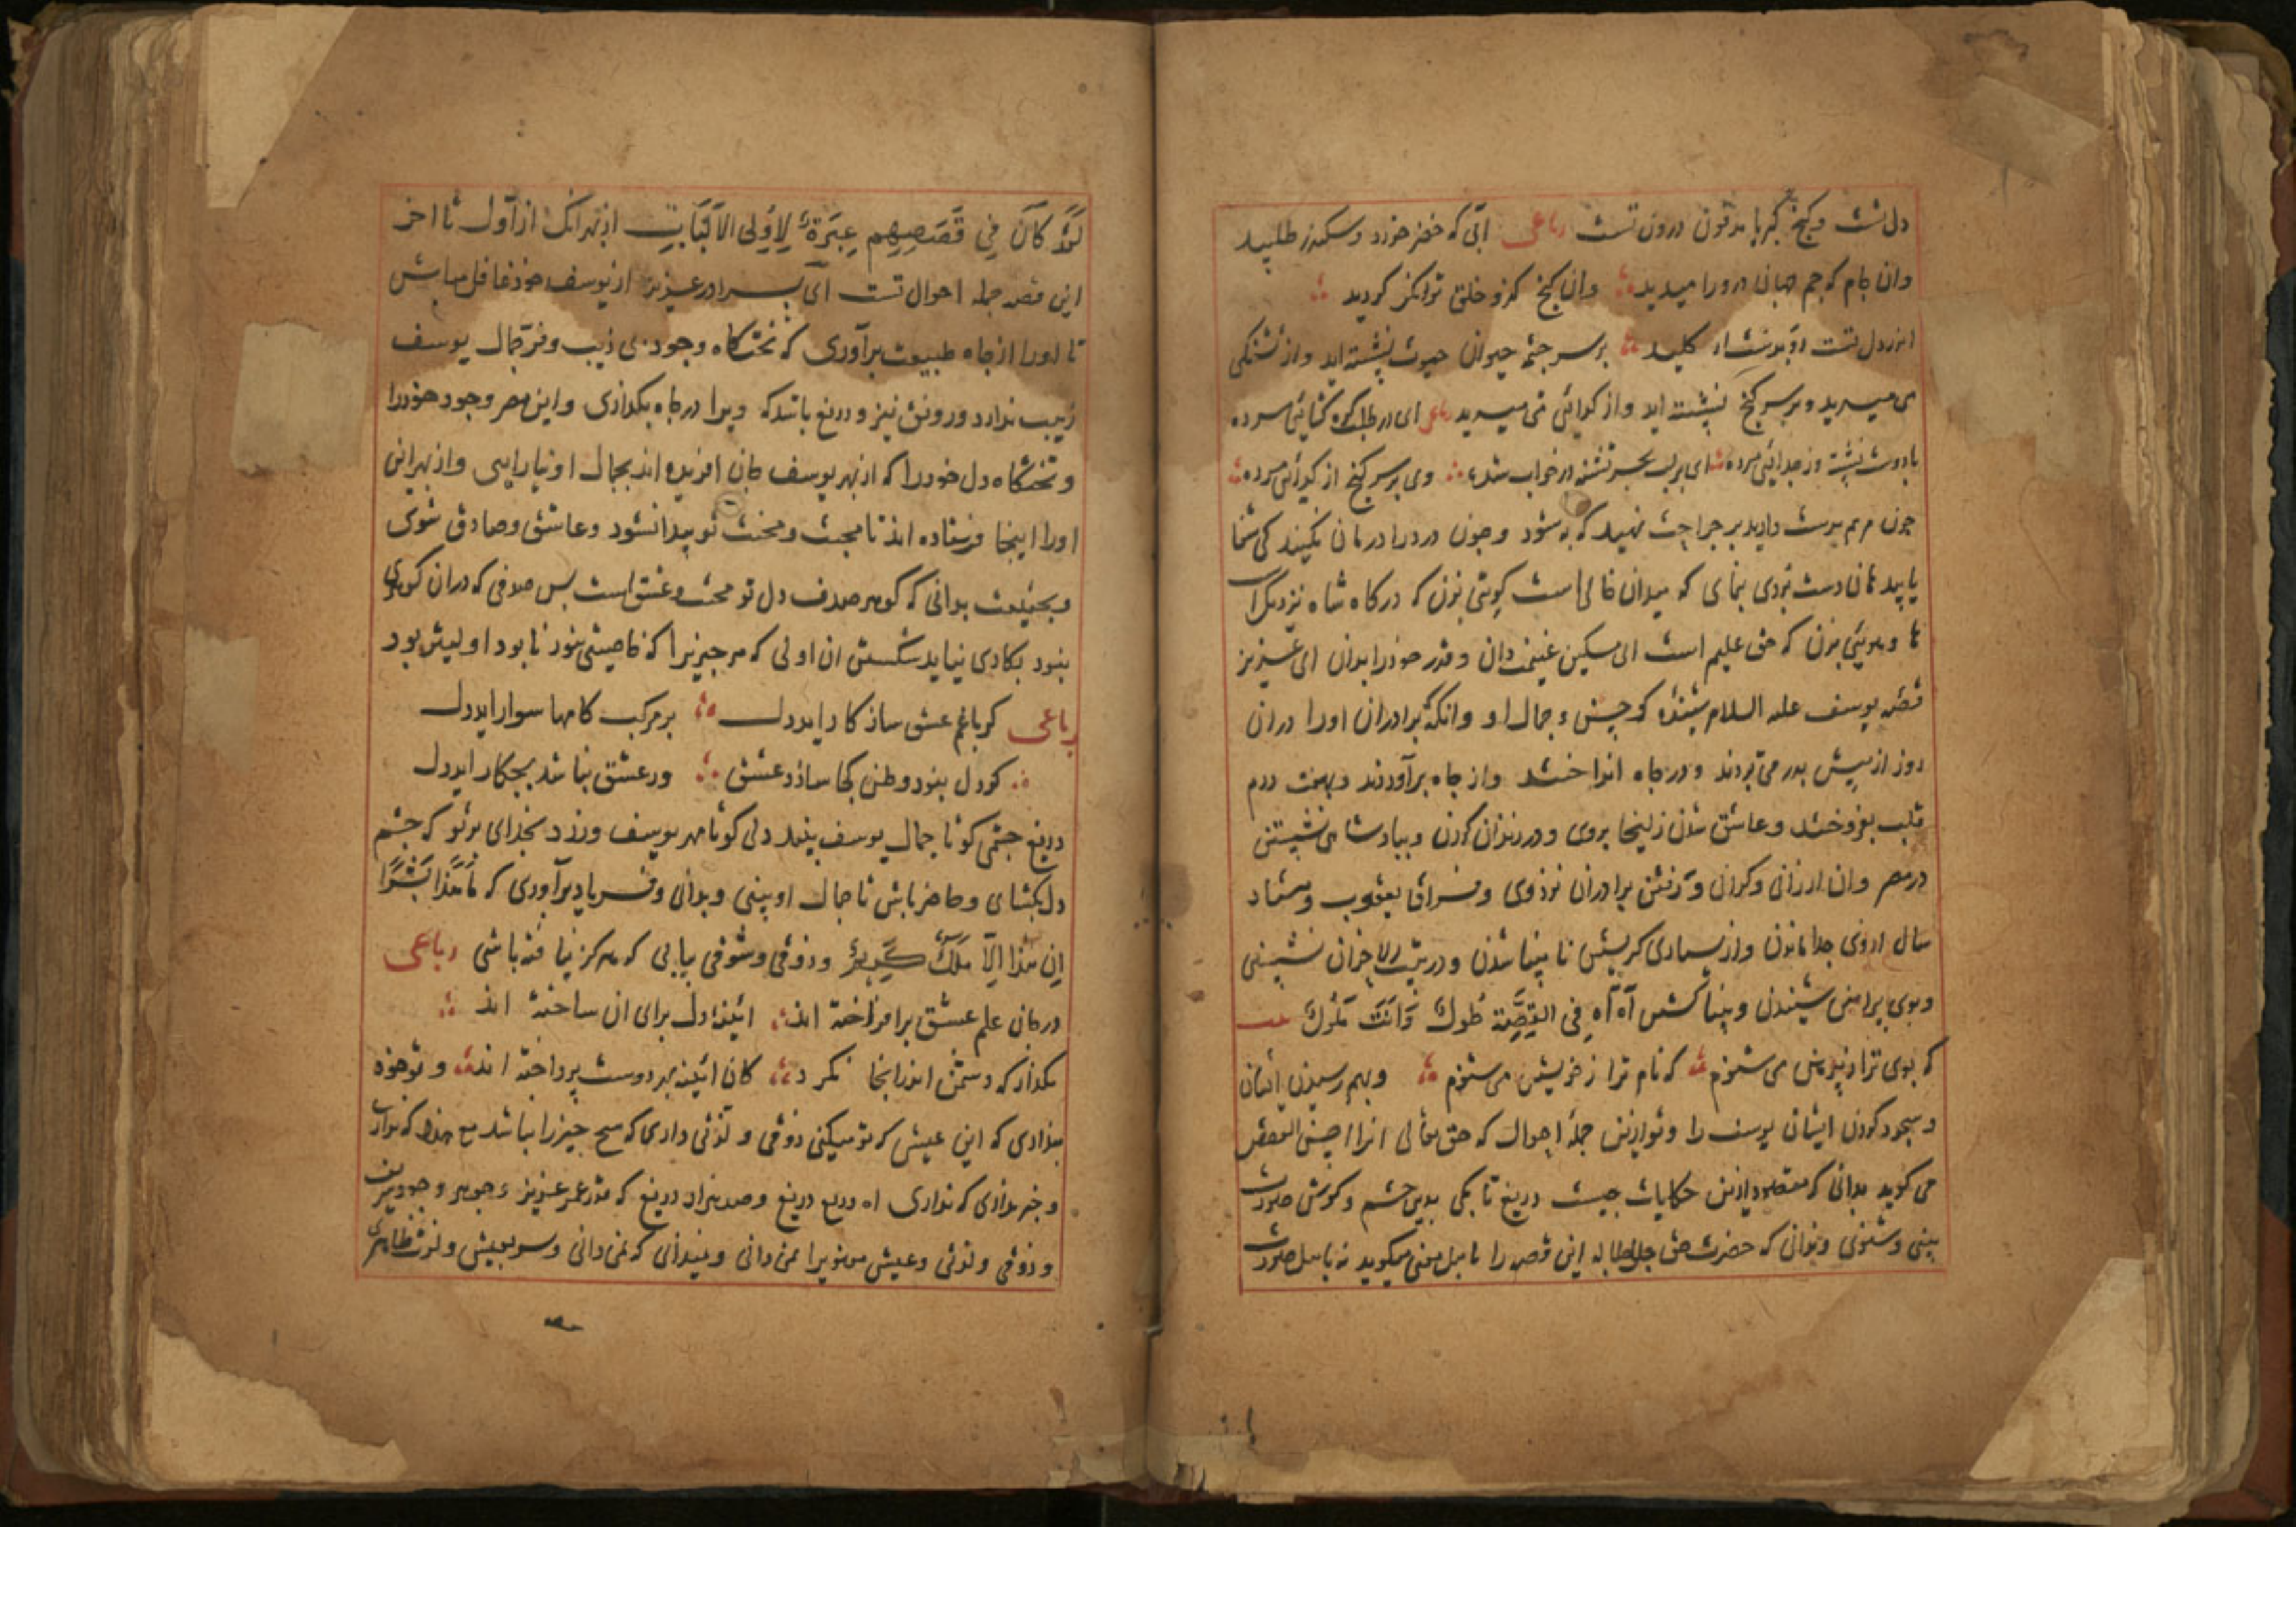 دل تست و گنج کبریا مدفون درون تست رباعی آبی که خضر خورد و سکندر طلبید
وان جام که جم جهان درو را میدید وان گنج کزو خلق توانگر گردید
اندر دل تست کلید بر سر چشمه حیوان نشسته اید و از تشنگی
می میرید و بر سر گنج نشسته اید و از گدائی می میرید رباعی ای در طلب گره گشائی مرده
با دوست نشسته وز جدائی مرده ای بر لب بحر تشنه در خواب شده وی بر سر گنج از گدائی مرده
چون مرهم بدست دارید بر جراحت نهید که به شود و چون درد را درمان
دست بردی بنمای که میدان خالی است گوئی بزن که درگاه شاه نزدیک است
بزن که حق علیم است ای مسکین غنیمت دان و قدر خود را بدان ای عزیز
قصه یوسف علیه السلام و جمال او و آنکه برادران او را دران
روز از پیش پدر می بردند و در چاه انداختند و از چاه برآوردند درم
قلب بفروختند و عاشق شدن زلیخا بروی و در زندان کردن و بپادشاهی نشستن
در مصر وان ارزانی و گرانی و رفتن برادران نزد وی و فراق یعقوب و هشتاد
سال از وی جدا ماندن و از بسیاری گریستن نابینا شدن و در بیت الاحزان نشستن
و بوی پیراهن شنیدن و بینا گشتن آه آه فی القصة طول وَاَنْتَ مَلُول بیت
که بوی ترا از پیرهن می شنوم که نام ترا ز خویشتن می شنوم و بهم رسیدن ایشان
و سجود کردن ایشان یوسف را جمله احوال که حق تعالی انرا احسن القصص
می گوید بدانی که مقصود ازین حکایات چیست دریغ تا بکی بدین چشم و گوش صورت
بینی و شنوی و ندانی که حضرت حق این قصه را با اهل معنی میگوید نه با اهل صورت
لَقَدْ كَانَ فِي قَصَصِهِم عِبْرَةٌ لِاُولِی الاَلْبَابِ از بهر انک از اول تا اخر
این قصه جمله احوال تست ای برادر عزیز از یوسف خود غافل مباش
تا او را از چاه طبیعت برآوری که تختگاه وجود بی زیب و فر جمال یوسف
زیب ندارد و رونق نیز و دریغ باشد که ویرا در چاه بگذاری و این مصر وجود خود را
و تختگاه دل خود را که از بهر یوسف جان افریده اند بجمال او نیارایی و از بهر این
او را اینجا فرستاده اند تا محبت و محنت تو پیدا شود و عاشق و صادق شوی
و بحقیقت بدانی که گوهر صدف دل تو محبت و عشق است پس صدفی که دران گوهری
نبود بکاری نیاید شکستن ان اولی که هر چیزیرا که خاصیتی نبود نابود اولیتر بود
رباعی گر با غم عشق سازگار اید دل بر مرکب کامها سوار اید دل
گر دل نبود وطن کجا سازد عشق ور عشق نباشد بچکار اید دل
دریغ چشمی کو تا جمال یوسف بیند دلی کو تا مهر یوسف ورزد بخدای بر تو که چشم
دل بگشای و حاضر باش تا جمال او بینی و بدانی و فریاد برآوری که مَا هَذَا بَشَرًا
اِن هَذَا اِلَّا مَلَكٌ كَرِيمٌ و ذوقی و شوقی یابی که هرگز نیافته باشی رباعی
در جان علم عشق برافراخته اند ائینه دل برای ان ساخته اند
بگذار که دشمن اندر اینجا نگرد کان ائینه بهر دوست پرداخته اند و تو خود
پنداری که این عیش که تو میکنی ذوقی و لذتی داری که هیچ چیز را نباشد
و خبر نداری که نداری اه دریغ دریغ و صد هزار دریغ که قدر عمر عزیز و جوهر وجود شریف
و ذوقی و لذتی و عیش معنویرا نمی دانی و میندانی که نمی دانی و سر بعیش و لذت ظاهری